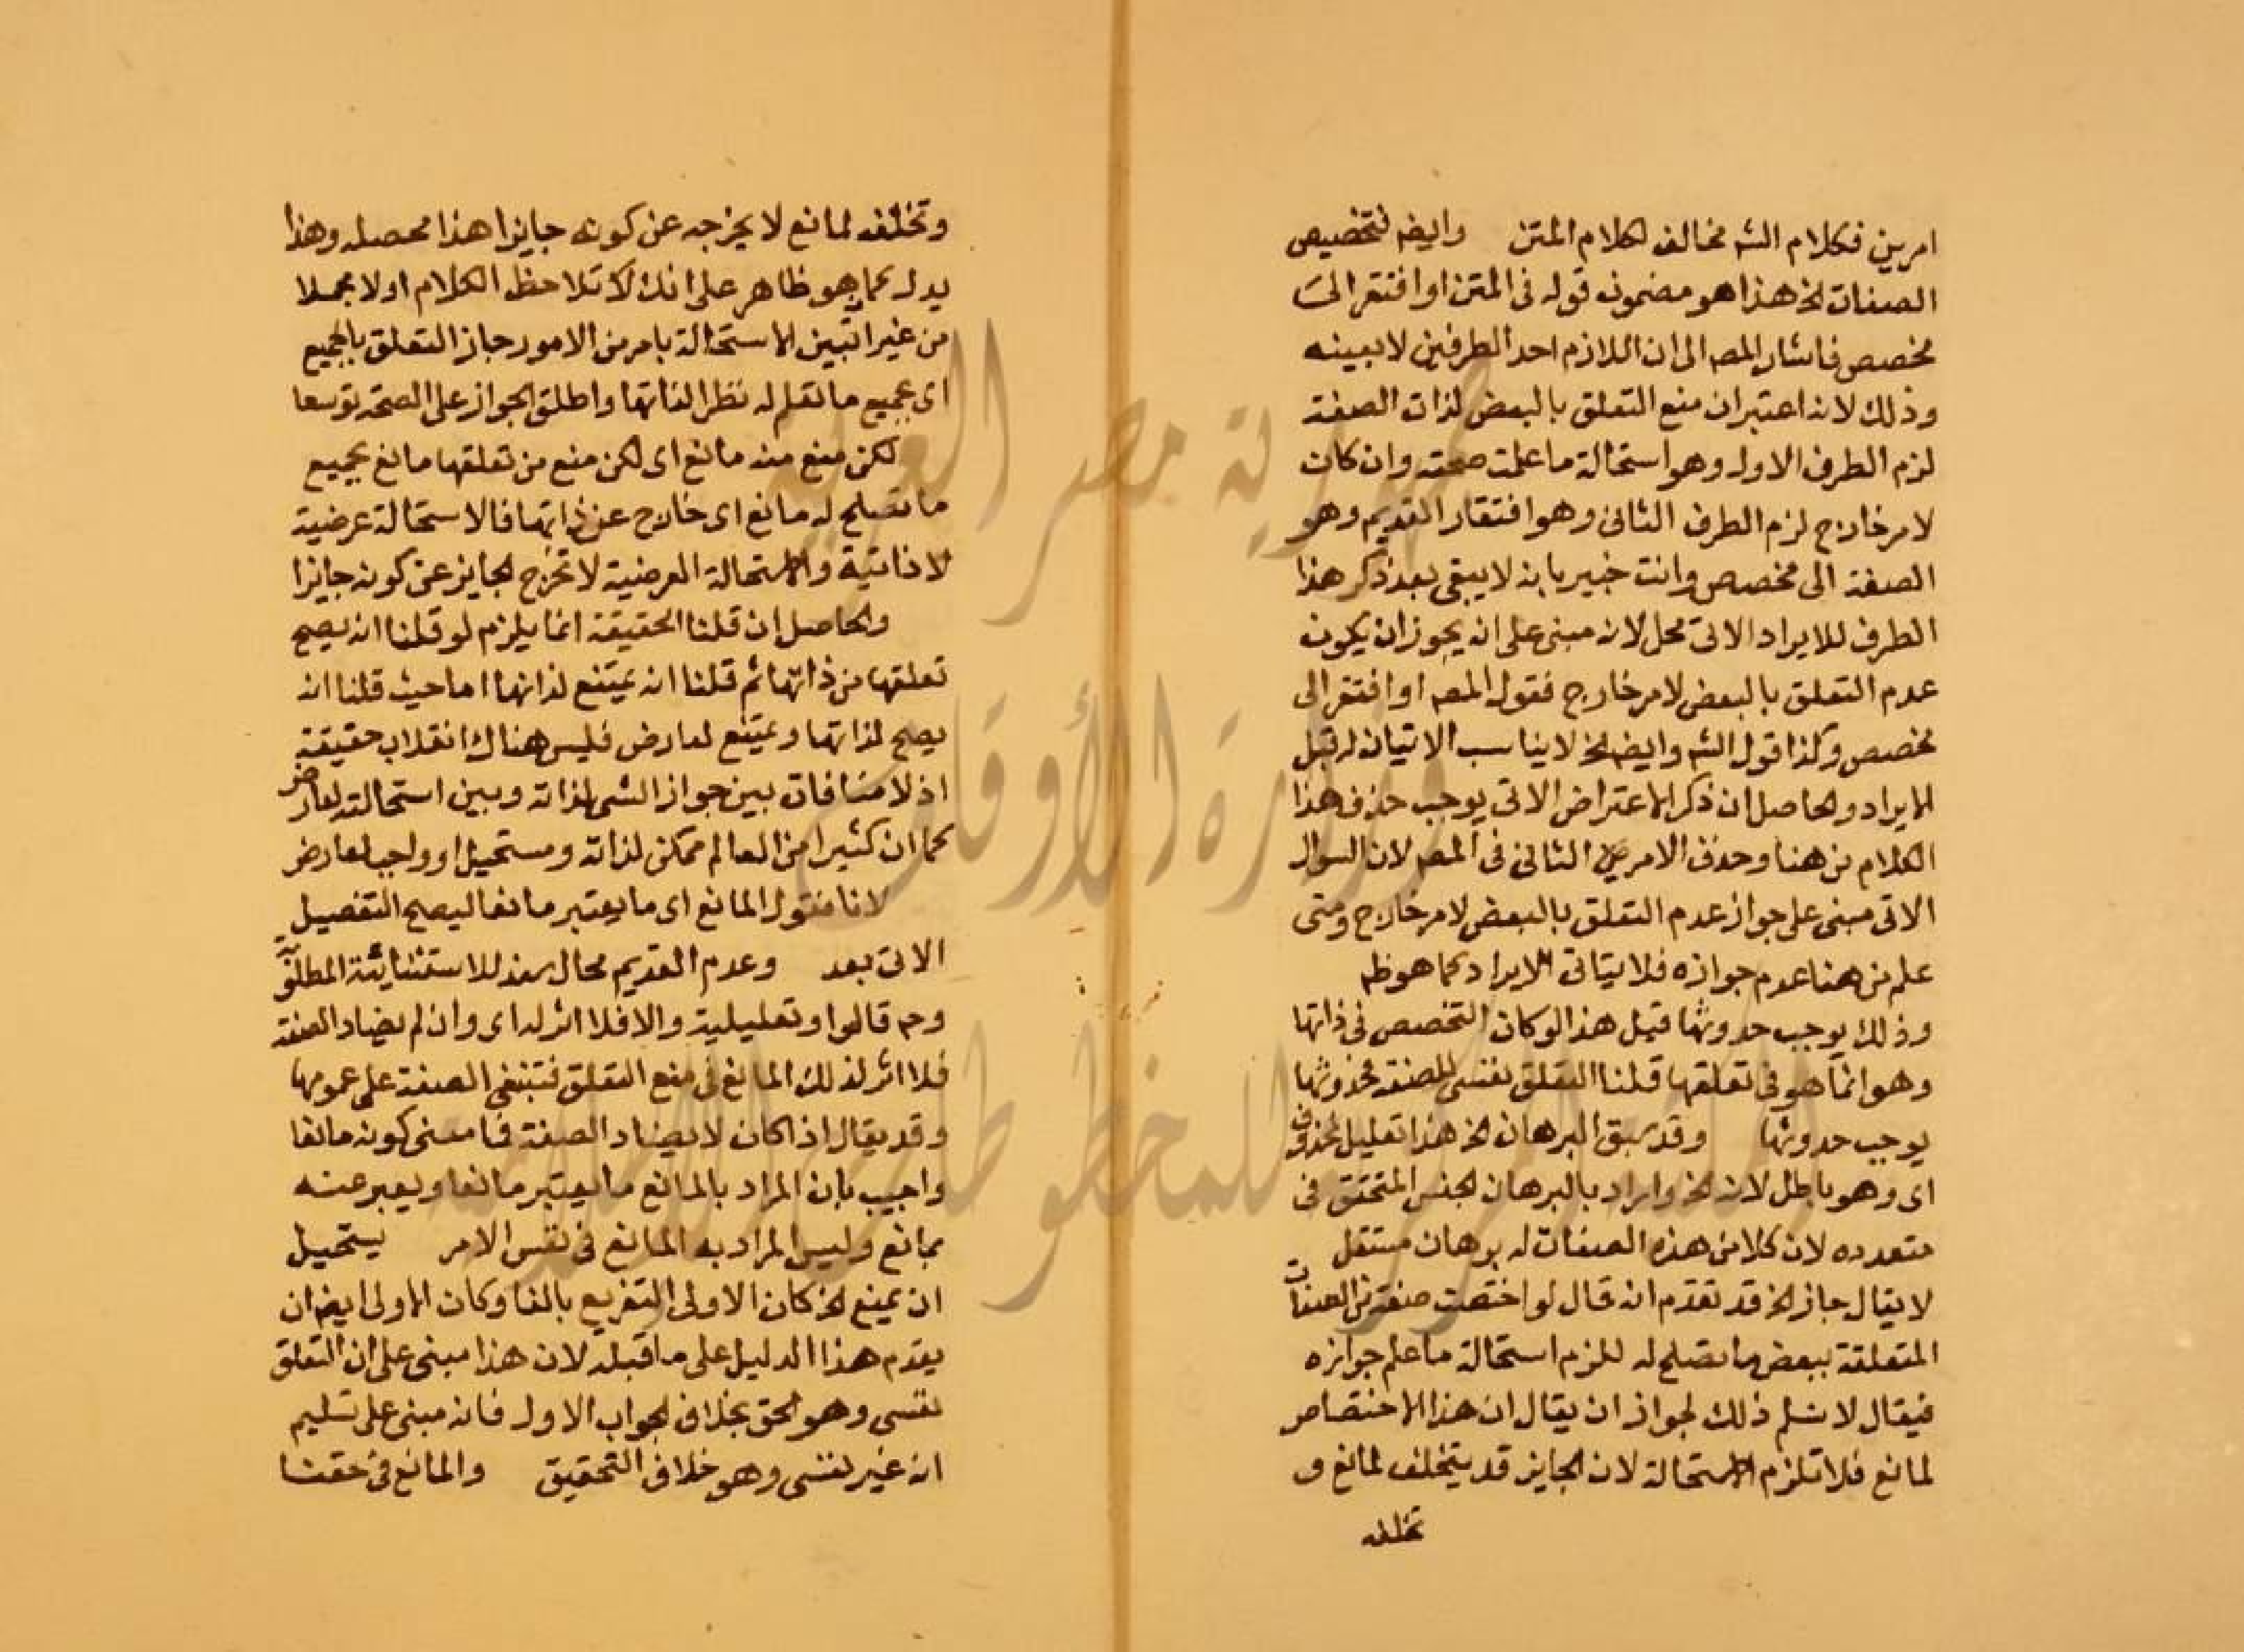 امرين فكلام الشه مخالف لكلام المتن وايضه فتخصيص
الصفات الخ هذا هو مضمون قوله فى المتن او افتقر الى
مخصص فاشار المصه الى ان اللازم احد الطرفين لا بعينه
وذلك لانه اعتبر ان منع التعلق بالبعض لذات الصفة
لزم الطرف الاول وهو استحالة ما علمت صحته وان كان
لامر خارج لزم الطرف الثانى وهو افتقار القديم وهو
الصفة الى مخصص وانت خبير بانه لا يبقى بعد ذكر هذا
الطرف للايراد الاتى محل لانه مبنى على انه يجوز ان يكون
عدم التعلق بالبعض لامر خارج فقول المصه او افتقر الى
مخصص وكذا قول الشه وايضه الخ لا يناسب الاتيان له قبل
الايراد والحاصل ان ذكر الاعتراض الاتى يوجب حذف هذا
الكلام من هنا وحذف الامر الثانى فى المصه لان السوال
الاتى مبنى على جواز عدم التعلق بالبعض لامر خارج ومتى
علم من هنا عدم جوازه فلا يتاتى الايراد كما هو ظه
وذلك يوجب حدوثها قيل هذا لو كان التخصص فى ذاتها
وهو انما هو فى تعلقها قلنا التعلق نفسى للصفة فحدوثها
يوجب حدوثها وقد سبق البرهان الخ هذا تعليل لمحذوف
اى وهو باطل لانه الخ واراد بالبرهان الجنس المتحقق فى
متعدده لان كلا من هذه الصفات له برهان مستقل
لا يقال جاز الخ قد تقدم انه قال لو اختصت صفة من الصفات
المتعلقة ببعض ما تصلح له للزم استحالة ما علم جوازه
فيقال لا نسلم ذلك لجواز ان يقال ان هذا الاختصاص
لمانع فلا تلزم الاستحالة لان الجايز قد يتخلف لمانع و
تخلفه
وتخلفه لمانع لا يخرجه عن كونه جايزا هذا محصله وهذا
يدل كما هو ظاهر على انك لا تلاحظ الكلام اولا مجملا
من غير تبين الاستحالة بامر من الامور جاز التعلق بالجميع
اى بجميع ما تعلم له نظرا لذاتها واطلق الجواز على الصحة توسعا
لكن منع منه مانع اى لكن منع من تعلقها مانع بجميع
ما تصلح له مانع اى خارج عن ذاتها فالاستحالة عرضية
لا ذاتية والاستحالة العرضية لا تخرج الجايز عن كونه جايزا
والحاصل ان قلنا الحقيقة انما يلزم لو قلنا انه يصح
تعلقها من ذاتها ثم قلنا انه يمتنع لذاتها اما حيث قلنا انه
يصح لذاتها ويمتنع لعارض فليس هناك انقلاب حقيقة
اذ لا منافات بين جواز الشى لذاته وبين استحالته لعارض
كما ان كثيرا من العالم ممكن لذاته ومستحيل او واجب لعارض
لانا نقول المانع اى ما يعتبر مانعا ليصح التفصيل
الاتى بعد وعدم القديم محال سند للاستثنائية المطلوبة
وحه قالوا وتعليلية والا فلا اثر له اى وان لم يضاد الصفة
فلا اثر لذلك المانع فى منع التعلق فتبقى الصفة على عمومها
وقد يقال اذا كان لا يضاد الصفة فما معنى كونه مانعا
واجيب بان المراد بالمانع ما يعتبر مانعا ويعبر عنه
بمانع وليس المراد به المانع فى نفس الامر يستحيل
ان يمنع الخ كان الاولى التفريع بالفا وكان الاولى ايضه ان
يقدم هذا الدليل على ما قبله لان هذا مبنى على ان التعلق
نفسى وهو الحق بخلاف الجواب الاول فانه مبنى على تسليم
انه غير نفسى وهو خلاف التحقيق والمانع فى حقنا